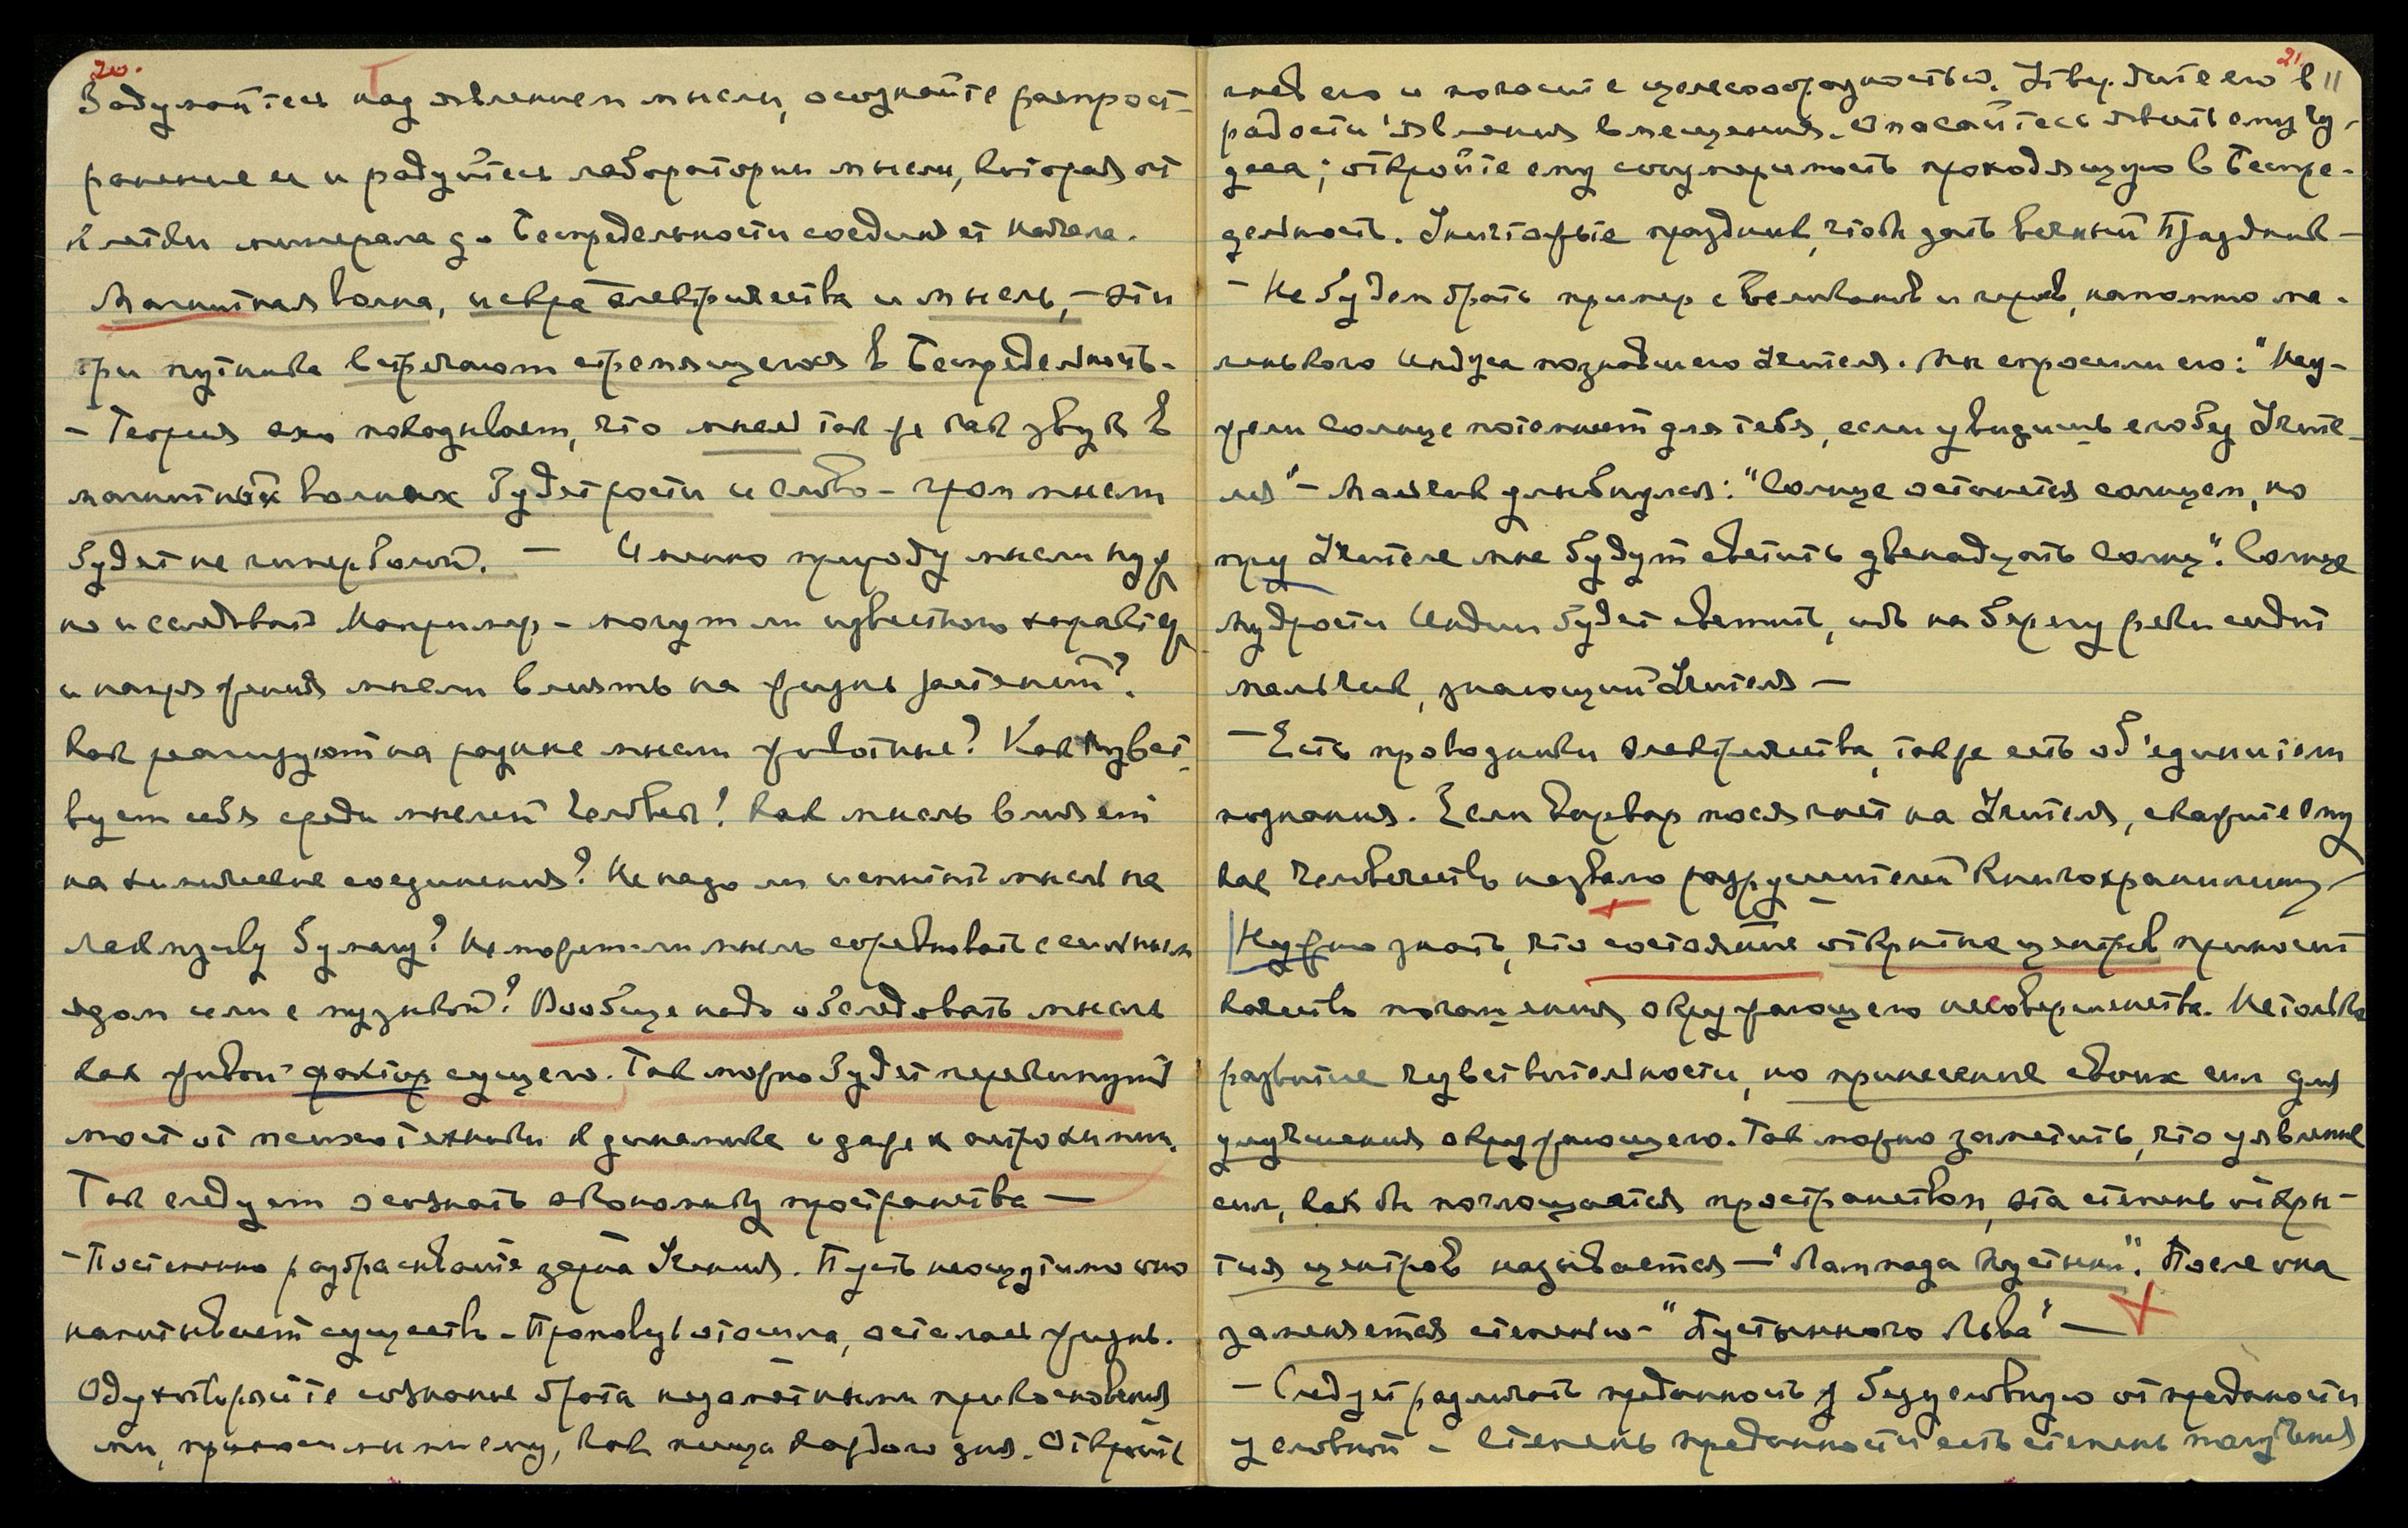 20.
Задумайтесь над явлением мысли, осознайте распрост-
ранение ея и радуйтесь лаборатории мысли, которая от
клетки минерала до Беспредельности соединяет начала.
Магнитная волна, искра электричества и мысль, – эти
три путника встречают стремящегося в Беспредельность.
– Теория эхо показывает, что мысль так же как звук в
магнитных волнах будет расти и слово – гром мысли
будет не гиперболой. – Именно природу мысли нуж
но исследовать Например – могут ли известного характера
и напряжения мысли влиять на жизнь растений?
Как реагируют на разные мысли животные? Как чувст-
вует себя среди мыслей человек? Как мысль влияет
на химические соединения? Не надо ли испытать мысль на
лакмусову бумагу? Не может ли мысль соревновать с сильным
ядом или с музыкой? Вообще надо обследовать мысль
как живой фактор сущего. Так можно будет перекинуть
мост от психотехники к динамике и даже к астрохимии.
Так следует осознать экономику пространства –
– Постепенно разбрасывайте зерна Учения. Пусть неощутимо оно
напитывает сущность – Проповедь отошла, осталась жизнь.
Одухотворяйте сознание брата незаметными прикосновения
ми, приносимыми ему, как пища каждого дня. Откройте
21
гнев его и погасите целесообразностью. Утвердите его в 11
радости явления вмещения. Опасайтесь явить ему чу-
деса; откройте ему соизмеримость проходящую в Беспре-
дельность. Уничтожьте праздник, чтоб дать вечный Праздник –
– Не будем брать пример с Великанов и героев, напомню ма-
ленького Индуса познавшего Учителя. Мы спросили его: "Неу-
жели Солнце потемнеет для тебя, если увидишь его без Учите-
ля" – Мальчик улыбнулся: "Солнце останется солнцем, но
при Учителе мне будут светить двенадцать Солнц". Солнце
Мудрости Индии будет светить, ибо на берегу реки сидит
мальчик, знающий Учителя –
– Есть проводники электричества, также есть об'единители
познания. Если варвар посягнет на Учителя, скажите ему
как человечество назвало разрушителей Книгохранилищ –
Нужно знать, что состояние открытие центров приносит
качество поглащения окружающего несовершенства. Не только
развитие чувствительности, но принесение своих сил для
улучшения окружающего. Так можно заметить, что уявление
сил, как бы поглощается пространством, эта степень откры-
тия центров называется – "Лампада Пустыни". После она
заменяется степенью – "Пустынного Льва" –
– Следует различать преданность безусловную от преданости
условной – Степень преданности есть степень получения